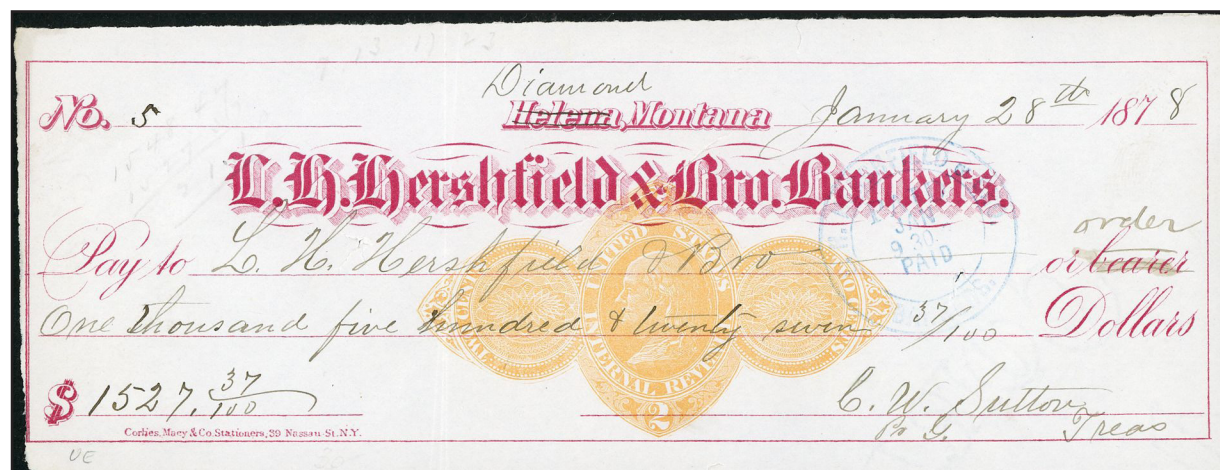 13 11 23
Diamond
No. 5 Helena, Montana January 28th 1878
L. H. Hershfield & Bro. Bankers.
order
Pay to L. H. Hershfield & Bro or bearer
One thousand five hundred & twenty seven 37/100 Dollars
$ 1527. 37/100
C. W. Sutton
Treas
Corlies, Macy & Co. Stationers, 39 Nassau St. N.Y.
UNITED STATES
INTERNAL REVENUE
2
JAN
30
PAID
UE